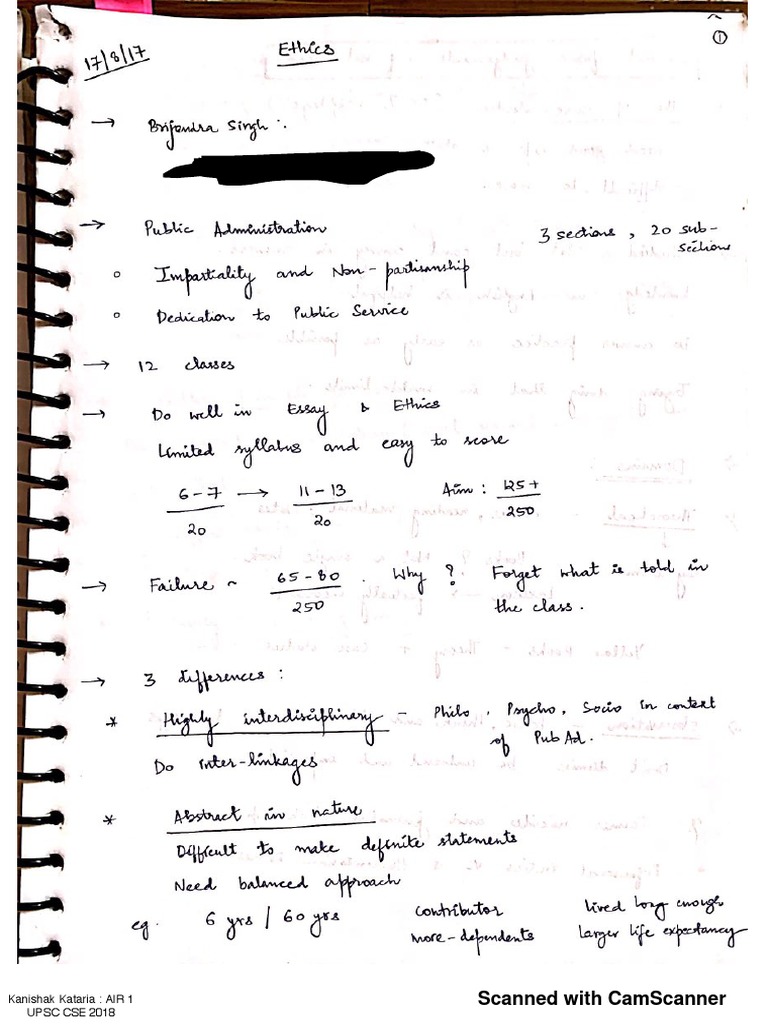 17/8/17
Ethics
①
→ Brijendra Singh :.
→ Public Administration 3 sections, 20 sub-sections
○ Impartiality and Non-partisanship
○ Dedication to Public Service
→ 12 classes
→ Do well in Essay & Ethics
Limited syllabus and easy to score
6-7/20 → 11-13/20 Aim : 125+/250
→ Failure ~ 65-80/250 . Why ? Forget what is told in
the class.
→ 3 differences :
* Highly interdisciplinary - Philo, Psycho, Socio in context
of Pub Ad.
Do inter-linkages
* Abstract in nature
Difficult to make definite statements
Need balanced approach
eg. 6 yrs / 60 yrs contributor lived long enough
more-dependents larger life expectancy
Kanishak Kataria : AIR 1
UPSC CSE 2018
Scanned with CamScanner